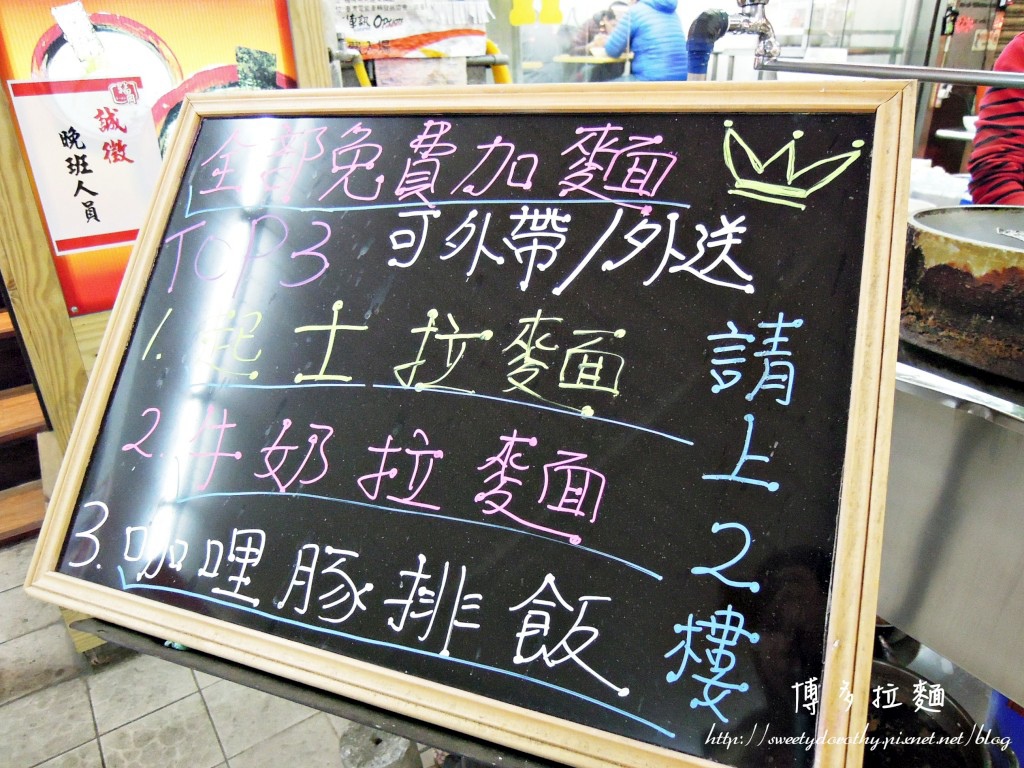 全部免費加麵
TOP3 可外帶/外送
1. 起士拉麵
2. 牛奶拉麵
3. 咖哩豚排飯
請上2樓
誠徵
晚班人員
博多拉麵
http://sweetydorothy.pixnet.net/blog